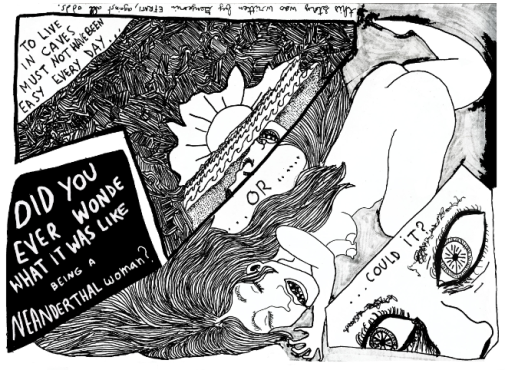 this story was written by Benyamin EFRATI, against all odds.
TO LIVE
IN CAVE,
MUST NOT HAVE BEEN
EASY EVERY DAY...
DID YOU
EVER WONDE
WHAT IT WAS LIKE
BEING A
NEANDERTHAL woman?
... OR ....
... COULD IT?